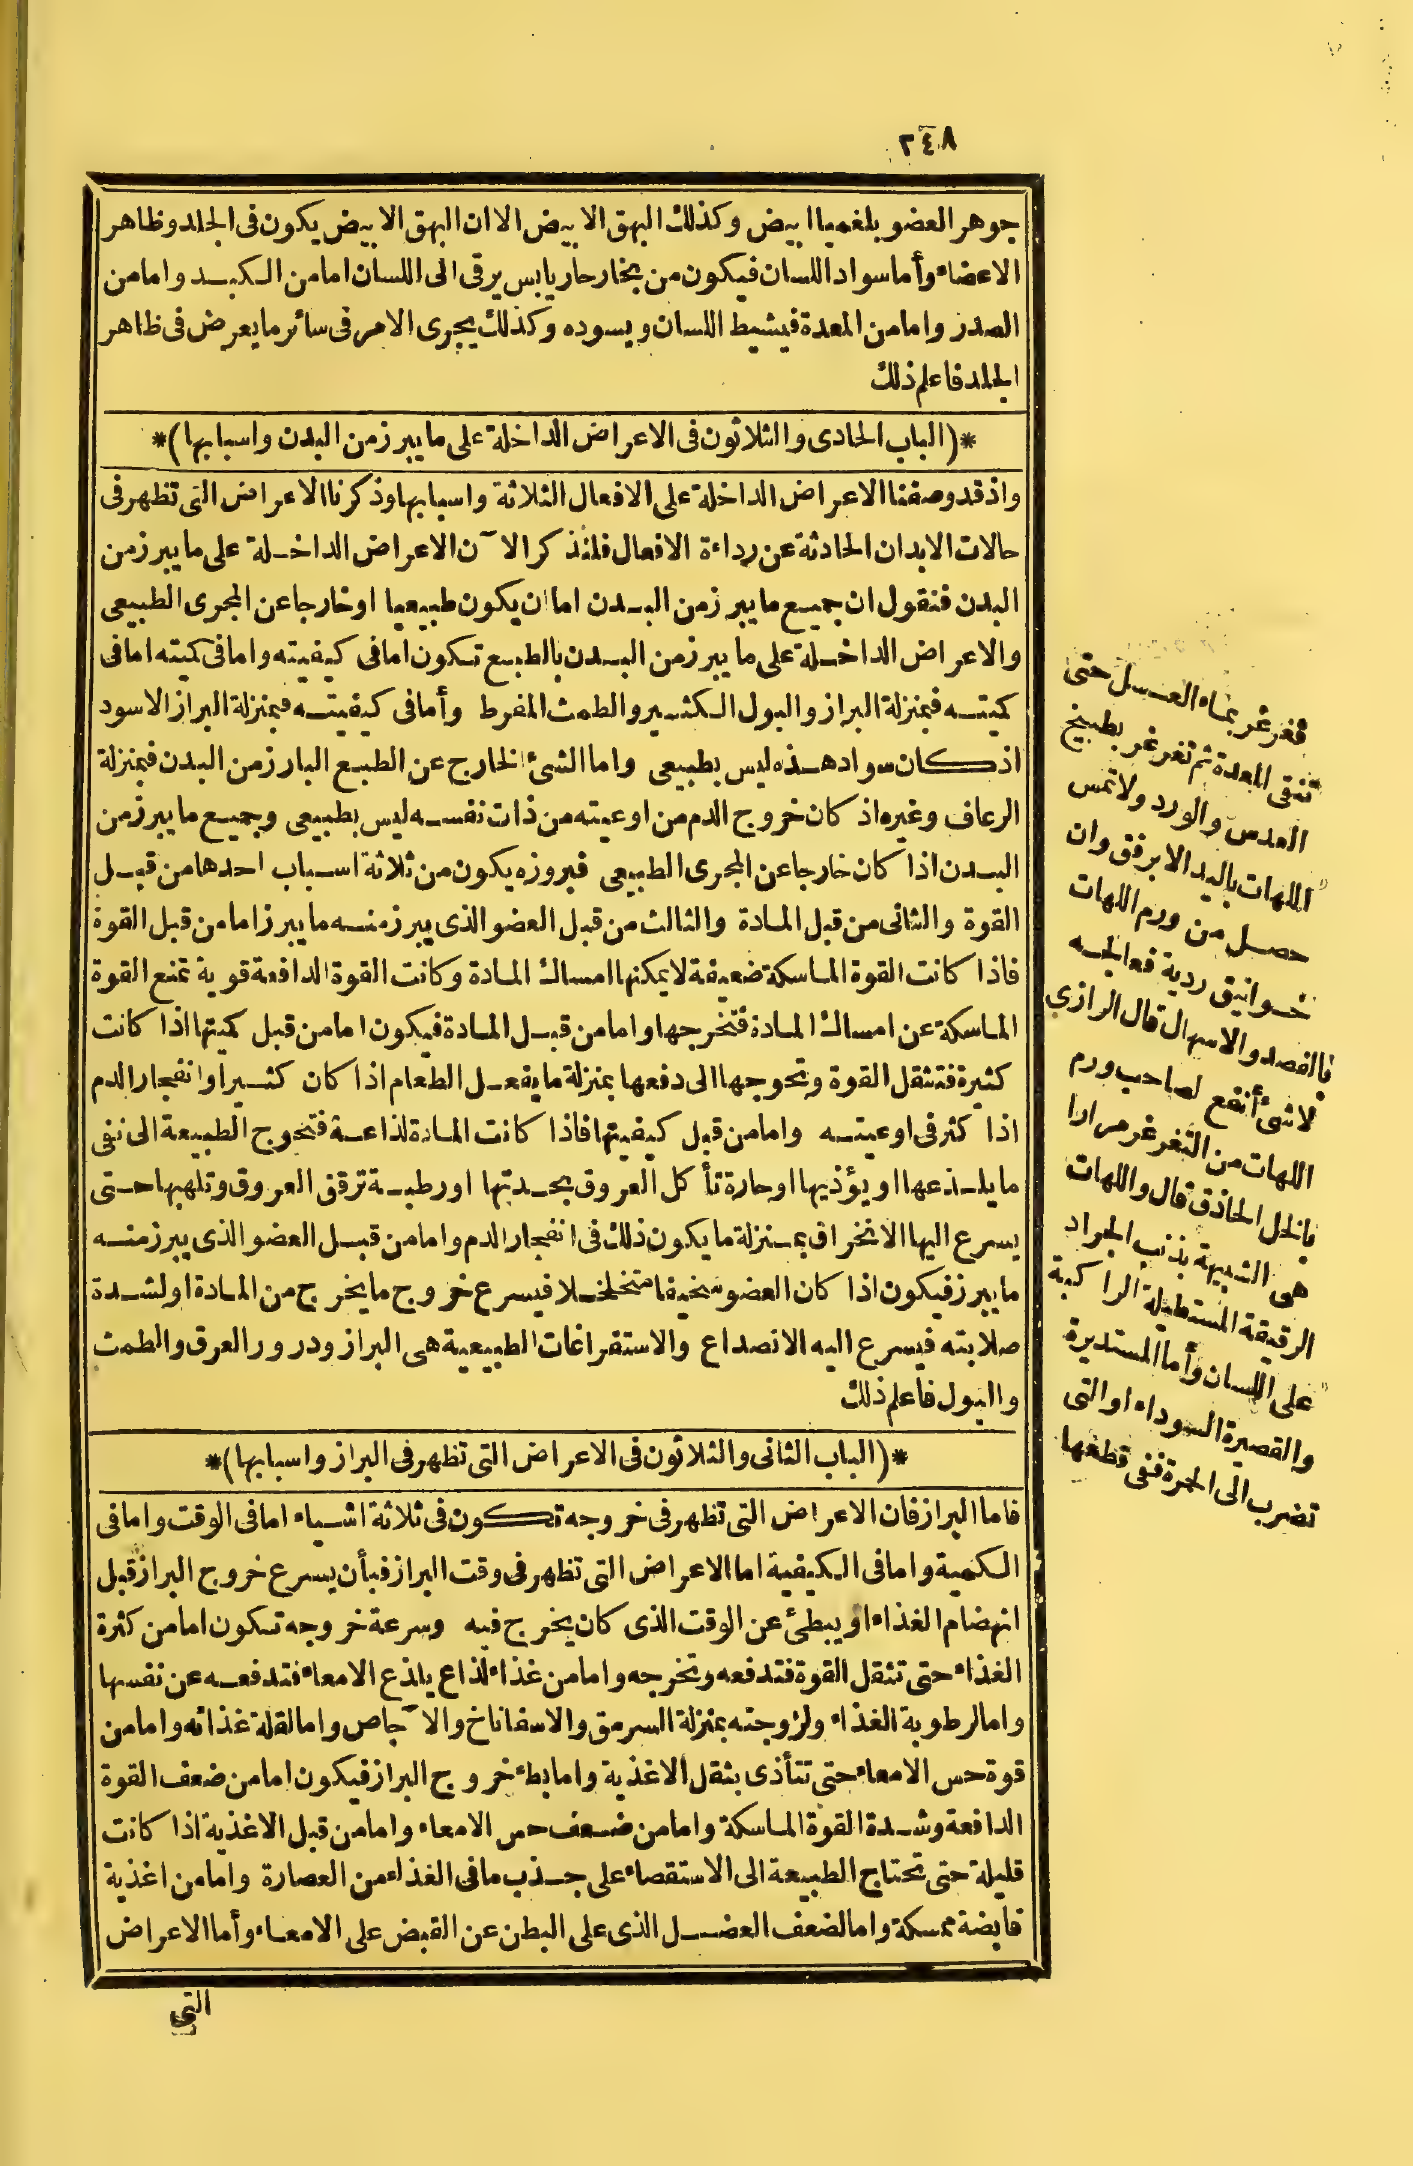 ٢٤٨
جوهر العضو بلغميا ابيض وكذلك البهق الابيض الا ان البهق الابيض يكون فى الجلد وظاهر
الاعضاء وأما سواد اللسان فيكون من بخار حار يابس يرقى الى اللسان اما من الكبد واما من
الصدر واما من المعدة فيشيط اللسان ويسوده وكذلك يجرى الامر فى سائر ما يعرض فى ظاهر
الجلد فاعلم ذلك
*(الباب الحادى والثلاثون فى الاعراض الداخلة على ما يبرز من البدن واسبابها)*
واذ قد وصفنا الاعراض الداخلة على الافعال الثلاثة واسبابها وذكرنا الاعراض التى تظهر فى
حالات الابدان الحادثة عن رداءة الافعال فلنذكر الآن الاعراض الداخلة على ما يبرز من
البدن فنقول ان جميع ما يبرز من البدن اما ان يكون طبيعيا او خارجا عن المجرى الطبيعى
والاعراض الداخلة على ما يبرز من البدن بالطبيع تكون اما فى كيفيته واما فى كميته اما فى
كميته فبمنزلة البراز والبول الكثير والطمث المفرط وأما فى كيفيته فبمنزلة البراز الاسود
اذ كان سواد هذه ليس بطبيعى واما الشئ الخارج عن الطبيع البارز من البدن فبمنزلة
الرعاف وغيره اذ كان خروج الدم من اوعيته من ذات نفسه ليس بطبيعى وجميع ما يبرز من
البدن اذا كان خارجا عن المجرى الطبيعى فبروزه يكون من ثلاثة اسباب احدها من قبل
القوة والثانى من قبل المادة والثالث من قبل العضو الذى يبرز منه ما يبرز اما من قبل القوة
فاذا كانت القوة الماسكة ضعيفة لا يمكنها امساك المادة وكانت القوة الدافعة قوية تمنع القوة
الماسكة عن امساك المادة فتخرجها واما من قبل المادة فيكون اما من قبل كميتها اذا كانت
كثيرة فتثقل القوة وتحوجها الى دفعها بمنزلة ما يفعل الطعام اذا كان كثيرا وانفجار الدم
اذا كثر فى اوعيته واما من قبل كيفيتها فاذا كانت المادة لذاعة فتحوج الطبيعة الى نفى
ما يلذعها او يؤذيها او حارة تأكل العروق بحدتها او رطبة ترقق العروق وتلهبها حتى
يسرع اليها الانخراق بمنزلة ما يكون ذلك فى انفجار الدم واما من قبل العضو الذى يبرز منه
ما يبرز فيكون اذا كان العضو سخيفا متخلخلا فيسرع خروج ما يخرج من المادة او لشدة
صلابته فيسرع اليه الانصداع والاستفراغات الطبيعية هى البراز ودرور العرق والطمث
والبول فاعلم ذلك
*(الباب الثانى والثلاثون فى الاعراض التى تظهر فى البراز واسبابها)*
فاما البراز فان الاعراض التى تظهر فى خروجه تكون فى ثلاثة اشياء اما فى الوقت واما فى
الكمية واما فى الكيفية اما الاعراض التى تظهر فى وقت البراز فبأن يسرع خروج البراز قبل
انهضام الغذاء او يبطئ عن الوقت الذى كان يخرج فيه وسرعة خروجه تكون اما من كثرة
الغذاء حتى تثقل القوة فتدفعه وتخرجه واما من غذاء لذاع يلذع الامعاء فتدفعه عن نفسها
واما لرطوبة الغذاء ولزوجته بمنزلة السرمق والاسفاناخ والآجاص واما لقلة غذائه واما من
قوة حس الامعاء حتى تتأذى بثقل الاغذية واما بطء خروج البراز فيكون اما من ضعف القوة
الدافعة وشدة القوة الماسكة واما من ضعف حس الامعاء واما من قبل الاغذية اذا كانت
قليلة حتى تحتاج الطبيعة الى الاستقصاء على جذب ما فى الغذاء من العصارة واما من اغذية
قابضة ممسكة واما لضعف العضل الذى على البطن عن القبض على الامعاء وأما الاعراض
التى
فغرغر بماء العسل حتى
تنقى المعدة ثم تغرغر بطبيخ
العدس والورد ولا تمس
اللهات باليد الا برفق وان
حصل من ورم اللهات
خوانيق ردية فعالجه
بالفصد والاسهال قال الرازى
لا شئ أنفع لصاحب ورم
اللهات من التغرغر مرارا
بالخل الحاذق قال واللهات
هى الشبيهة بذنب الجراد
الرقيقة المستطيلة الراكبة
على اللسان وأما المستديرة
والقصيرة السوداء او التى
تضرب الى الحمرة ففى قطعها